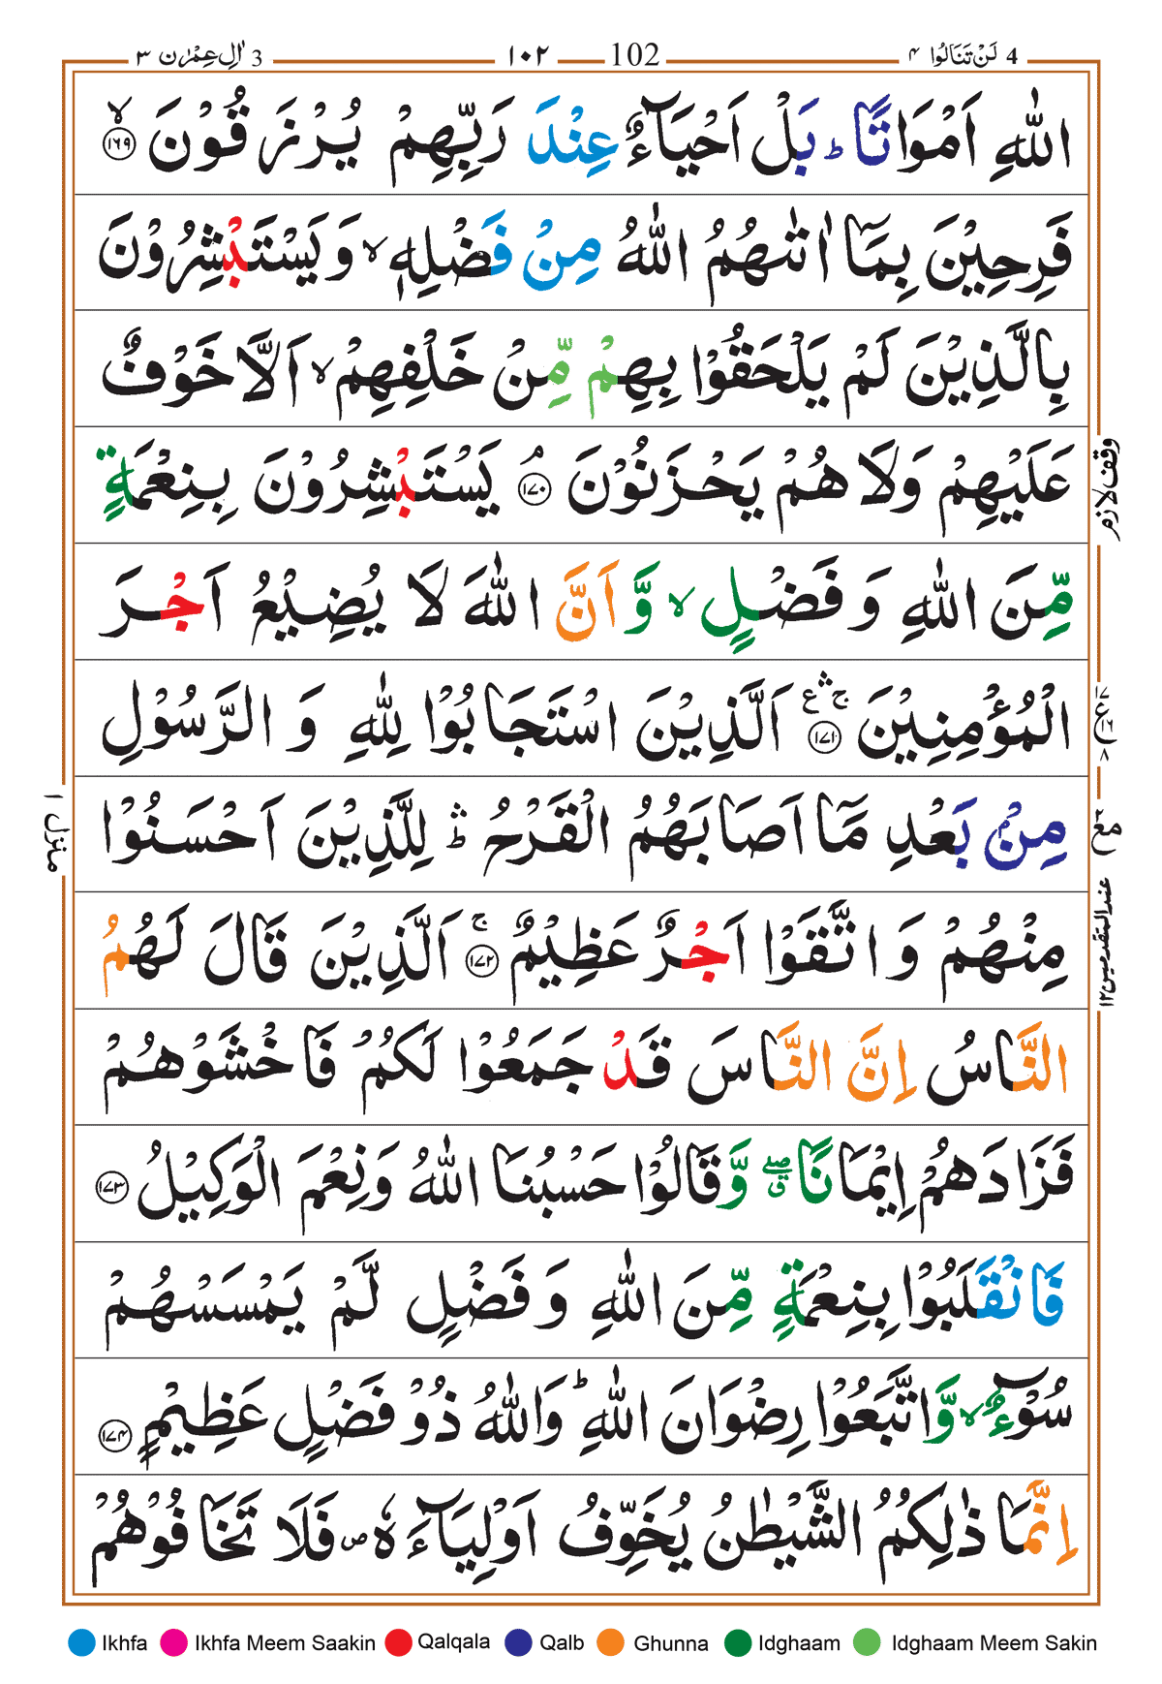 3 اٰلِ عِمْرٰن ٣ ١٠٢ 102 لَنْ تَنَالُوا ٤ 4
اللّٰهِ اَمْوَاتًا ؕ بَلْ اَحْيَآءٌ عِنْدَ رَبِّهِمْ يُرْزَقُوْنَ ۙ ﴿١٦٩﴾
فَرِحِيْنَ بِمَاۤ اٰتٰٮهُمُ اللّٰهُ مِنْ فَضْلِهٖ ۙ وَيَسْتَبْشِرُوْنَ
بِالَّذِيْنَ لَمْ يَلْحَقُوْا بِهِمْ مِّنْ خَلْفِهِمْ ۙ اَلَّا خَوْفٌ
عَلَيْهِمْ وَلَا هُمْ يَحْزَنُوْنَ ۘ ﴿١٧٠﴾ يَسْتَبْشِرُوْنَ بِنِعْمَةٍ
مِّنَ اللّٰهِ وَ فَضْلٍ ۙ وَّ اَنَّ اللّٰهَ لَا يُضِيْعُ اَجْرَ
الْمُؤْمِنِيْنَ ۛۚ ع ﴿١٧١﴾ اَلَّذِيْنَ اسْتَجَابُوْا لِلّٰهِ وَ الرَّسُوْلِ
مِنْۢ بَعْدِ مَاۤ اَصَابَهُمُ الْقَرْحُ ؕۛ لِلَّذِيْنَ اَحْسَنُوْا
مِنْهُمْ وَ اتَّقَوْا اَجْرٌ عَظِيْمٌ ۚ ﴿١٧٢﴾ اَلَّذِيْنَ قَالَ لَهُمُ
النَّاسُ اِنَّ النَّاسَ قَدْ جَمَعُوْا لَكُمْ فَاخْشَوْهُمْ
فَزَادَهُمْ اِيْمَانًا ۖق وَّقَالُوْا حَسْبُنَا اللّٰهُ وَنِعْمَ الْوَكِيْلُ ﴿١٧٣﴾
فَانْقَلَبُوْا بِنِعْمَةٍ مِّنَ اللّٰهِ وَ فَضْلٍ لَّمْ يَمْسَسْهُمْ
سُوْٓءٌ ۙ وَّاتَّبَعُوْا رِضْوَانَ اللّٰهِ ؕ وَاللّٰهُ ذُوْ فَضْلٍ عَظِيْمٍ ﴿١٧٤﴾
اِنَّمَا ذٰلِكُمُ الشَّيْطٰنُ يُخَوِّفُ اَوْلِيَآءَهٗ ۖ فَلَا تَخَافُوْهُمْ
وقف لازم
مع
عند المتقدمين ١٢
منزل ١
Ikhfa Ikhfa Meem Saakin Qalqala Qalb Ghunna Idghaam Idghaam Meem Sakin